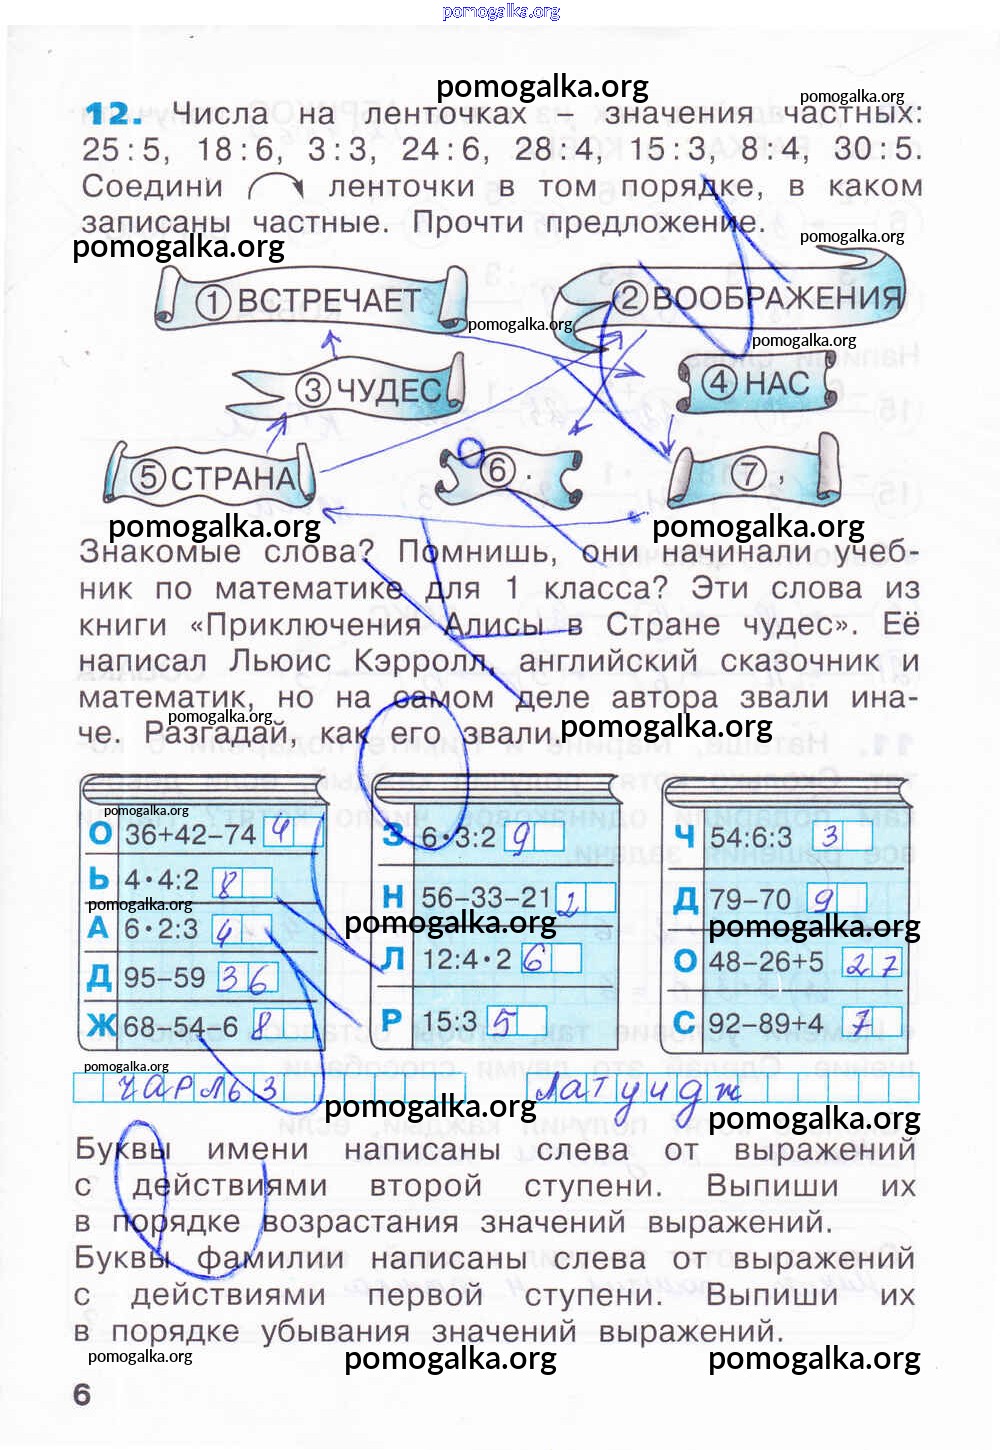 pomogalka.org
pomogalka.org
12. Числа на ленточках – значения частных:
pomogalka.org
25:5, 18:6, 3:3, 24:6, 28:4, 15:3, 8:4, 30:5.
Соедини ленточки в том порядке, в каком
записаны частные. Прочти предложение.
pomogalka.org pomogalka.org
1 ВСТРЕЧАЕТ 2 ВООБРАЖЕНИЯ
pomogalka.org pomogalka.org
3 ЧУДЕС 4 НАС
5 СТРАНА 6 . 7 ,
pomogalka.org pomogalka.org
Знакомые слова? Помнишь, они начинали учеб-
ник по математике для 1 класса? Эти слова из
книги «Приключения Алисы в Стране чудес». Её
написал Льюис Кэрролл, английский сказочник и
математик, но на самом деле автора звали ина-
че. Разгадай, как его звали.
pomogalka.org pomogalka.org
pomogalka.org
О 36+42–74 4 З 6•3:2 9 Ч 54:6:3 3
Ь 4•4:2 8 Н 56–33–21 2 Д 79–70 9
pomogalka.org pomogalka.org pomogalka.org
А 6•2:3 4 Л 12:4•2 6 О 48–26+5 27
Д 95–59 36 Р 15:3 5 С 92–89+4 7
Ж 68–54–6 8
pomogalka.org
ЧАРЛЬЗ ЛАТУИДЖ
pomogalka.org pomogalka.org
Буквы имени написаны слева от выражений
с действиями второй ступени. Выпиши их
в порядке возрастания значений выражений.
Буквы фамилии написаны слева от выражений
с действиями первой ступени. Выпиши их
в порядке убывания значений выражений.
pomogalka.org pomogalka.org pomogalka.org
6